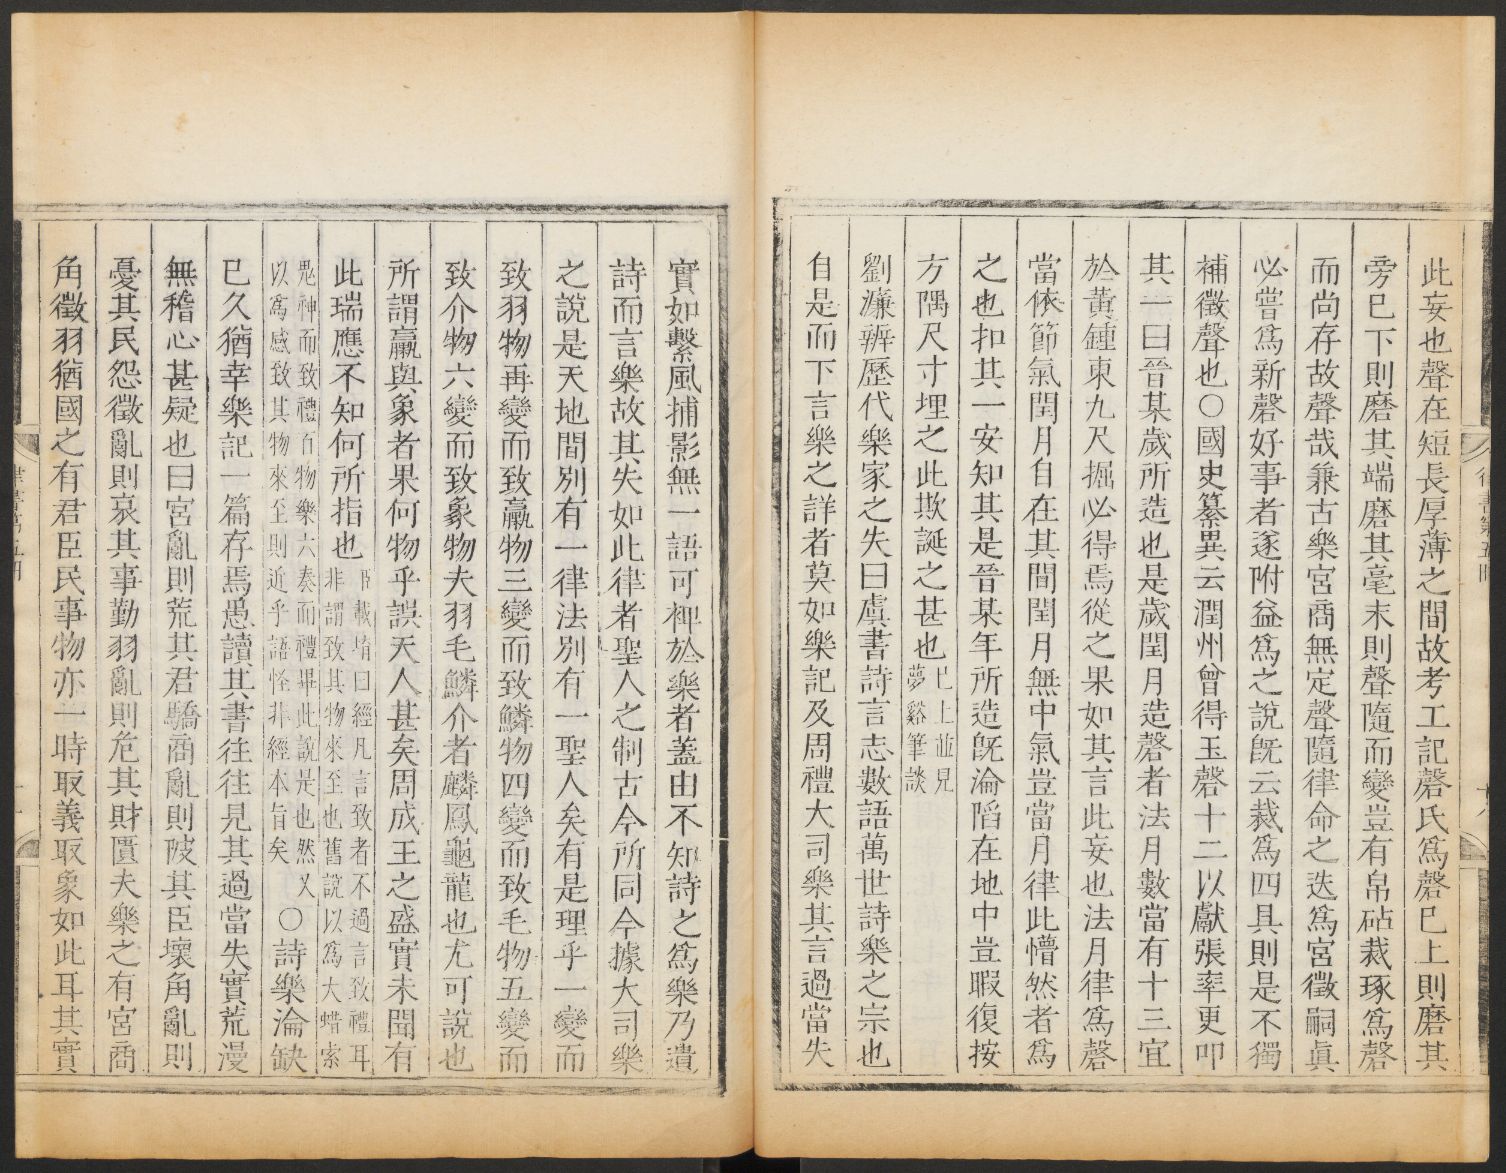 此妄也聲在短長厚薄之間故考工記磬氏爲磬巳上則磨其
旁巳下則磨其端磨其毫末則聲隨而變豈有帛砧裁琢爲磬
而尚存故聲哉兼古樂宮商無定聲隨律命之迭爲宮徵嗣眞
必嘗爲新磬好事者遂附益爲之說旣云裁爲四具則是不獨
補徵聲也○國史纂異云潤州曾得玉磬十二以獻張率更叩
其一曰晉某歲所造也是歲閏月造磬者法月數當有十三宜
於黃鍾東九尺掘必得焉從之果如其言此妄也法月律爲磬
當依節氣閏月自在其間閏月無中氣豈當月律此懵然者爲
之也扣其一安知其是晉某年所造旣淪陷在地中豈暇復按
方隅尺寸埋之此欺誕之甚也巳上並見
夢谿筆談
劉濂辨歷代樂家之失曰虞書詩言志數語萬世詩樂之宗也
自是而下言樂之詳者莫如樂記及周禮大司樂其言過當失
實如繫風捕影無一語可裨於樂者蓋由不知詩之爲樂乃遺
詩而言樂故其失如此律者聖人之制古今所同今據大司樂
之說是天地間別有一律法別有一聖人矣有是理乎一變而
致羽物再變而致驘物三變而致鱗物四變而致毛物五變而
致介物六變而致象物夫羽毛鱗介者麟鳳龜龍也尤可說也
所謂驘與象者果何物乎誤天人甚矣周成王之盛實未聞有
此瑞應不知何所指也
載堉曰經凡言致者不過言致禮耳
非謂致其物來至也舊說以爲大蜡索
鬼神而致禮百物樂六奏而禮畢此說是也然又
以爲感致其物來至則近乎語怪非經本旨矣
○詩樂淪缺
巳久猶幸樂記一篇存焉愚讀其書往往見其過當失實荒漫
無稽心甚疑也曰宮亂則荒其君驕商亂則陂其臣壞角亂則
憂其民怨徵亂則哀其事勤羽亂則危其財匱夫樂之有宮商
角徵羽猶國之有君臣民事物亦一時取義取象如此耳其實